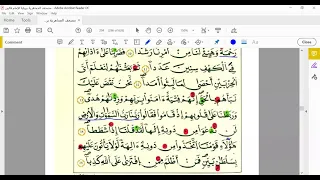 Comment
رَحْمَةً وَهَيِّئْ لَنَا مِنْ أَمْرِنَا رَشَدًا ۝ فَضَرَبْنَا عَلَىٰ ءَاذَانِهِمْ
فِي الْكَهْفِ سِنِينَ عَدَدًا ۝ ثُمَّ بَعَثْنَٰهُمْ لِنَعْلَمَ أَيُّ
الْحِزْبَيْنِ أَحْصَىٰ لِمَا لَبِثُوا أَمَدًا ۝ نَحْنُ نَقُصُّ عَلَيْكَ
نَبَأَهُمْ بِالْحَقِّ إِنَّهُمْ فِتْيَةٌ ءَامَنُوا بِرَبِّهِمْ وَزِدْنَٰهُمْ هُدًى ۝
وَرَبَطْنَا عَلَىٰ قُلُوبِهِمْ إِذْ قَامُوا فَقَالُوا رَبُّنَا رَبُّ السَّمَٰوَٰتِ وَالْأَرْضِ
لَنْ نَدْعُوَا مِنْ دُونِهِ إِلَٰهًا لَقَدْ قُلْنَا إِذًا شَطَطًا ۝
هَٰؤُلَاءِ قَوْمُنَا اتَّخَذُوا مِنْ دُونِهِ ءَالِهَةً لَوْلَا يَأْتُونَ عَلَيْهِمْ
بِسُلْطَٰنٍ بَيِّنٍ فَمَنْ أَظْلَمُ مِمَّنِ افْتَرَىٰ عَلَى اللَّهِ كَذِبًا ۝